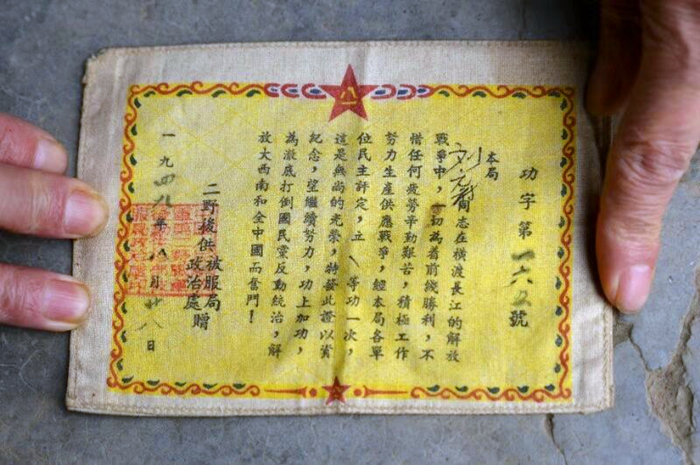 八一
功字第一六號
本局
刘同志在橫渡長江的解放
戰爭中,一切為着前綫勝利,不
惜任何疲勞辛勤艱苦,積極工作
努力生產供應戰爭,經本局各單
位民主評定,立等功一次,
這是無尚的光榮,特發此證以資
紀念,望繼續努力,功上加功,
為澈底打倒國民黨反動統治,解
放大西南和全中國而奮鬥!
二野後供被服局
政治處贈
一九四九年八月廿八日